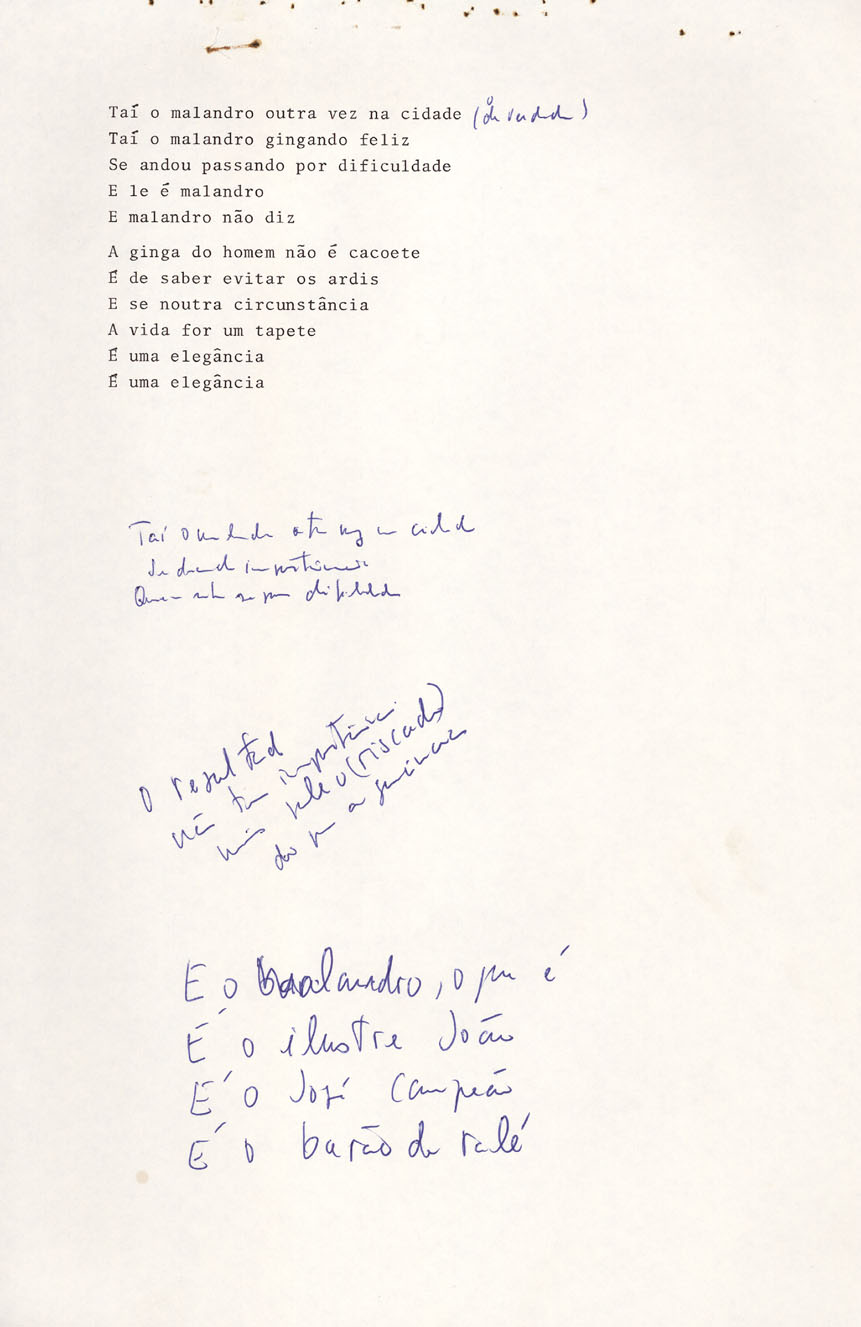 Taí o malandro outra vez na cidade (o de verdade)
Taí o malandro gingando feliz
Se andou passando por dificuldade
E le é malandro
E malandro não diz
A ginga do homem não é cacoete
É de saber evitar os ardis
E se noutra circunstância
A vida for um tapete
É uma elegância
É uma elegância
Taí o malandro outra vez na cidade
importância
O resultado
não tem importância
mas vale o (riscado)
E o malandro, o que é
É o ilustre João
É o José Campeão
É o barão da ralé